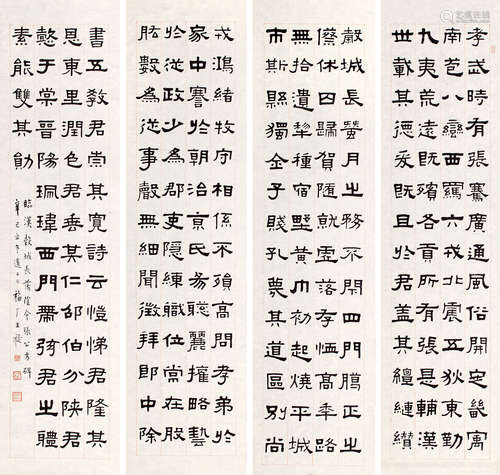 孝武時有張騫廣通風俗開定畿寓
南苞八蠻西羈六戎北震五狄東勤
九夷荒遠既殯各貢所有張是輔漢
世載其德爰既且於君蓋其繵縺纘
戎鴻緒牧守相係不殞高問孝弟於
家中謇於朝治京氏易聰麗權略藝
於從政少為郡吏隱練職位常在股
肱數為從事聲無細聞徵拜郎中除
穀城長蠶月之務不閉四門臘正之
僚休囚歸賀隨就虛落存恤高年路
無拾遺犁種宿野黃巾初起燒平城
市斯縣獨全子賤孔蔑其道區別尚
書五教君崇其寬詩云愷悌君隆其
恩東里潤色君垂其仁邵伯分陝君
懿于棠晉陽珮瑋西門帶弦君之體
素能雙其勛
臨漢穀城長蕩陰令張公方碑
福厂王禔